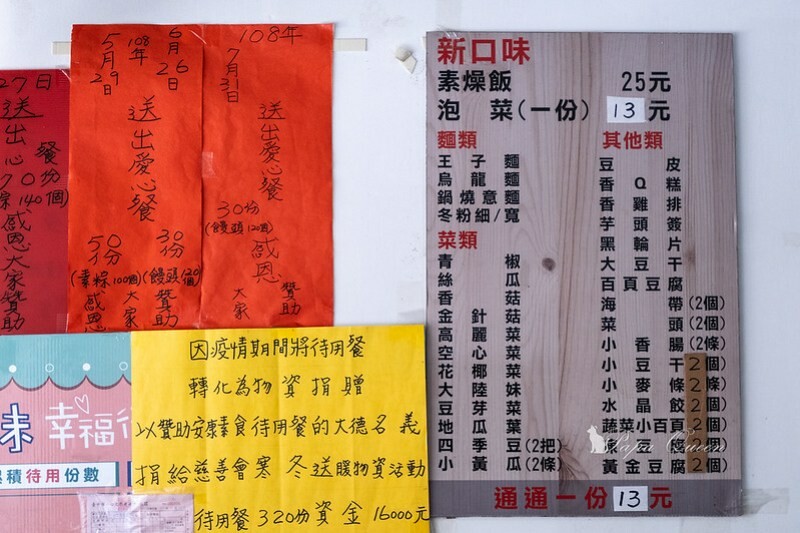 27日
送出心餐
70份
(素粽140個)
感恩大家贊助
108年
5月29日
6月26日
送出愛心餐
50份
(素粽100個)
30份
感恩大家贊助
108年
7月31日
送出愛心餐
30份
(饅頭120個)
感恩大家贊助
味 幸福行
累積待用份數
因疫情期間將待用餐
轉化為物資捐贈
以贊助安康素食待用餐的大德名義
捐給慈善會寒冬送暖物資活動
待用餐320份資金16000元
新口味
素燥飯 25元
泡菜(一份) 13元
麵類
王子麵
烏龍麵
鍋燒意麵
冬粉細/寬
菜類
青椒
絲瓜
香菇
金針菇
高麗菜
空心菜
花椰菜
大陸妹
豆芽菜
地瓜葉
四季豆(2把)
小黃瓜(2條)
其他類
豆皮
香Q糕
香雞排
芋頭簽
黑輪片
大豆干
百頁豆腐
海帶(2個)
菜頭(2個)
小香腸(2條)
小豆干2個)
小麥條2條)
水晶餃2個)
蔬菜小百頁2個)
腐2個)
黃金豆腐2個)
Papa Queen
通通一份13元